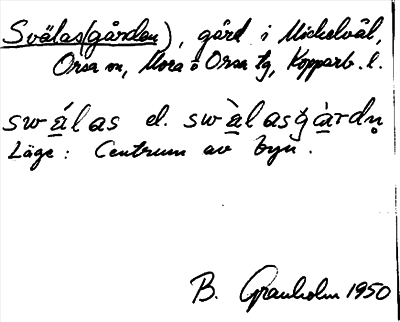 Svälas(gården), gård i Mickelvål,
Orsa sn, Mora o Orsa tg, Kopparb. l.
swálas el. swàlasgàrdn̥
Läge: Centrum av byn.
B. Granholm 1950